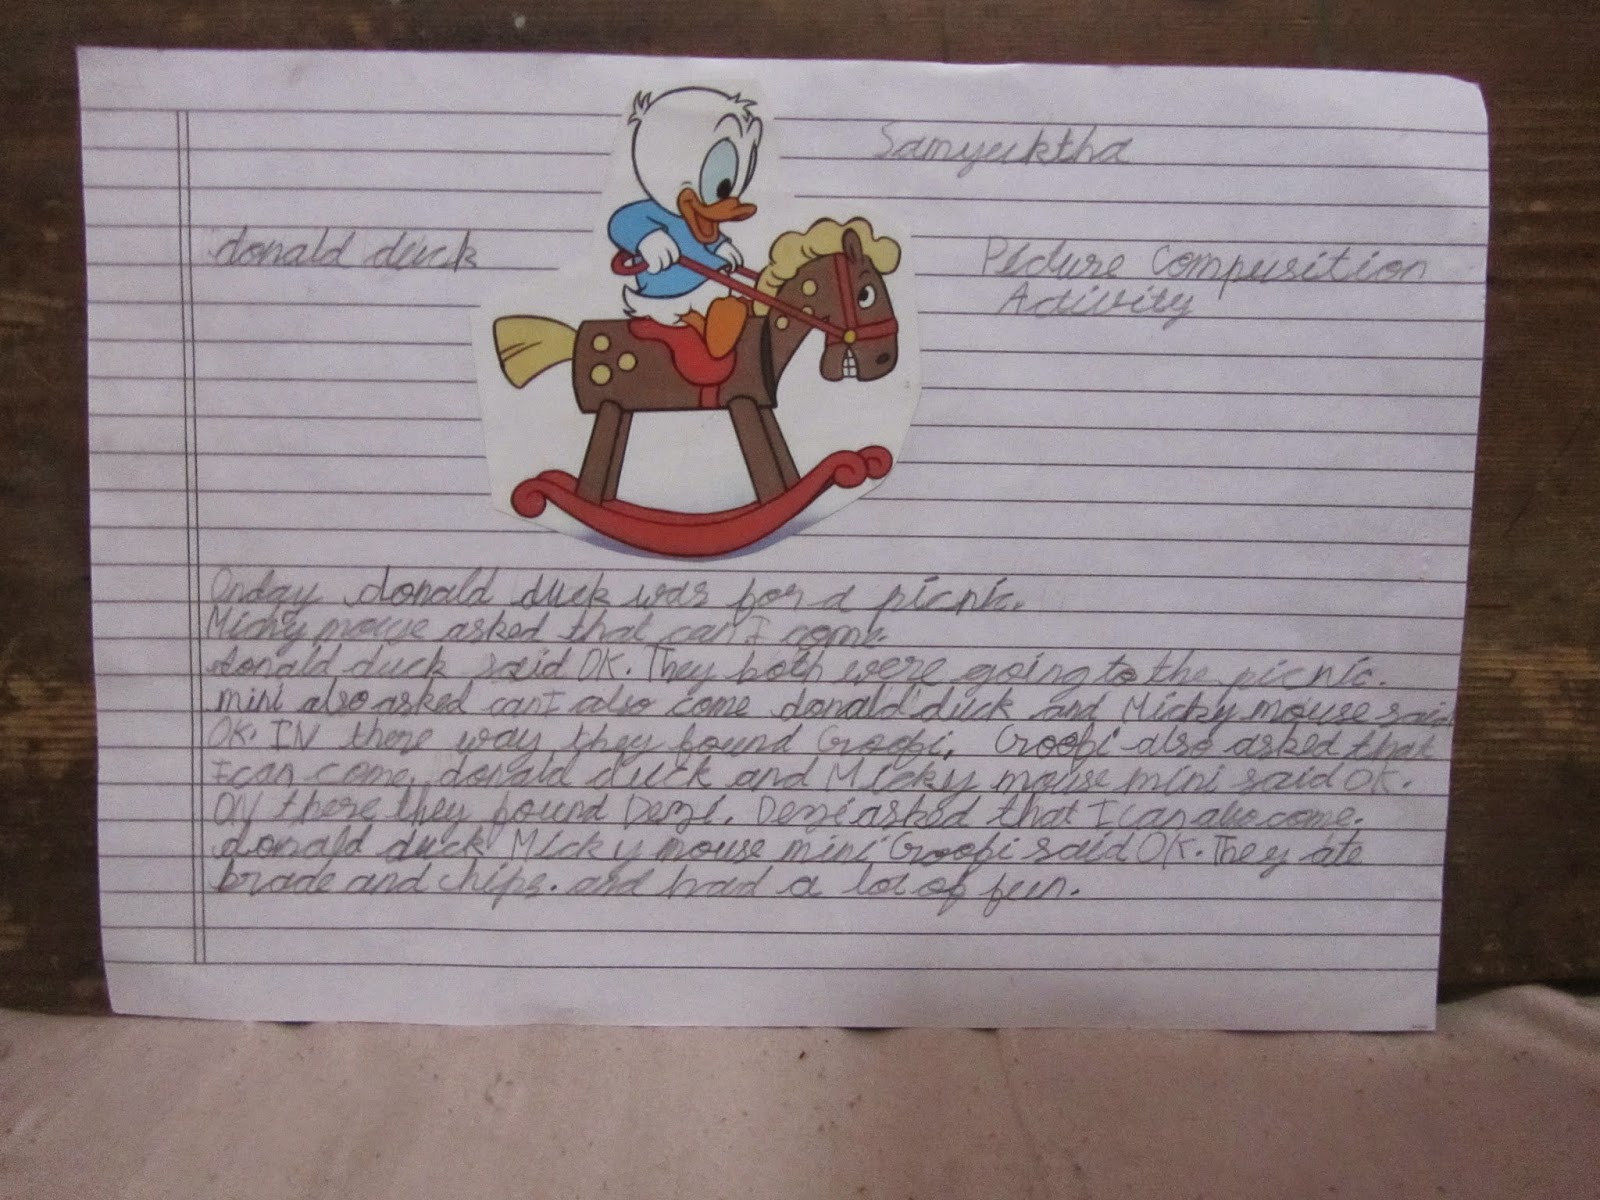 Samyucktha
donald duck
Picture Compusition
Activity
Onday donald duck was for a picnic.
Micky mouse asked that can I come.
donald duck said OK. They both were going to the picnic.
mini also asked can I also come donald duck and Micky mouse said
OK. IN there way they found Groofi. Groofi also asked that
I can come. donald duck and Micky mouse mini said OK.
ON there they found Dezi. Dezi asked that I can also come.
donald duck Micky mouse mini Groofi said OK. They ate
brade and chips. and had a lot of fun.